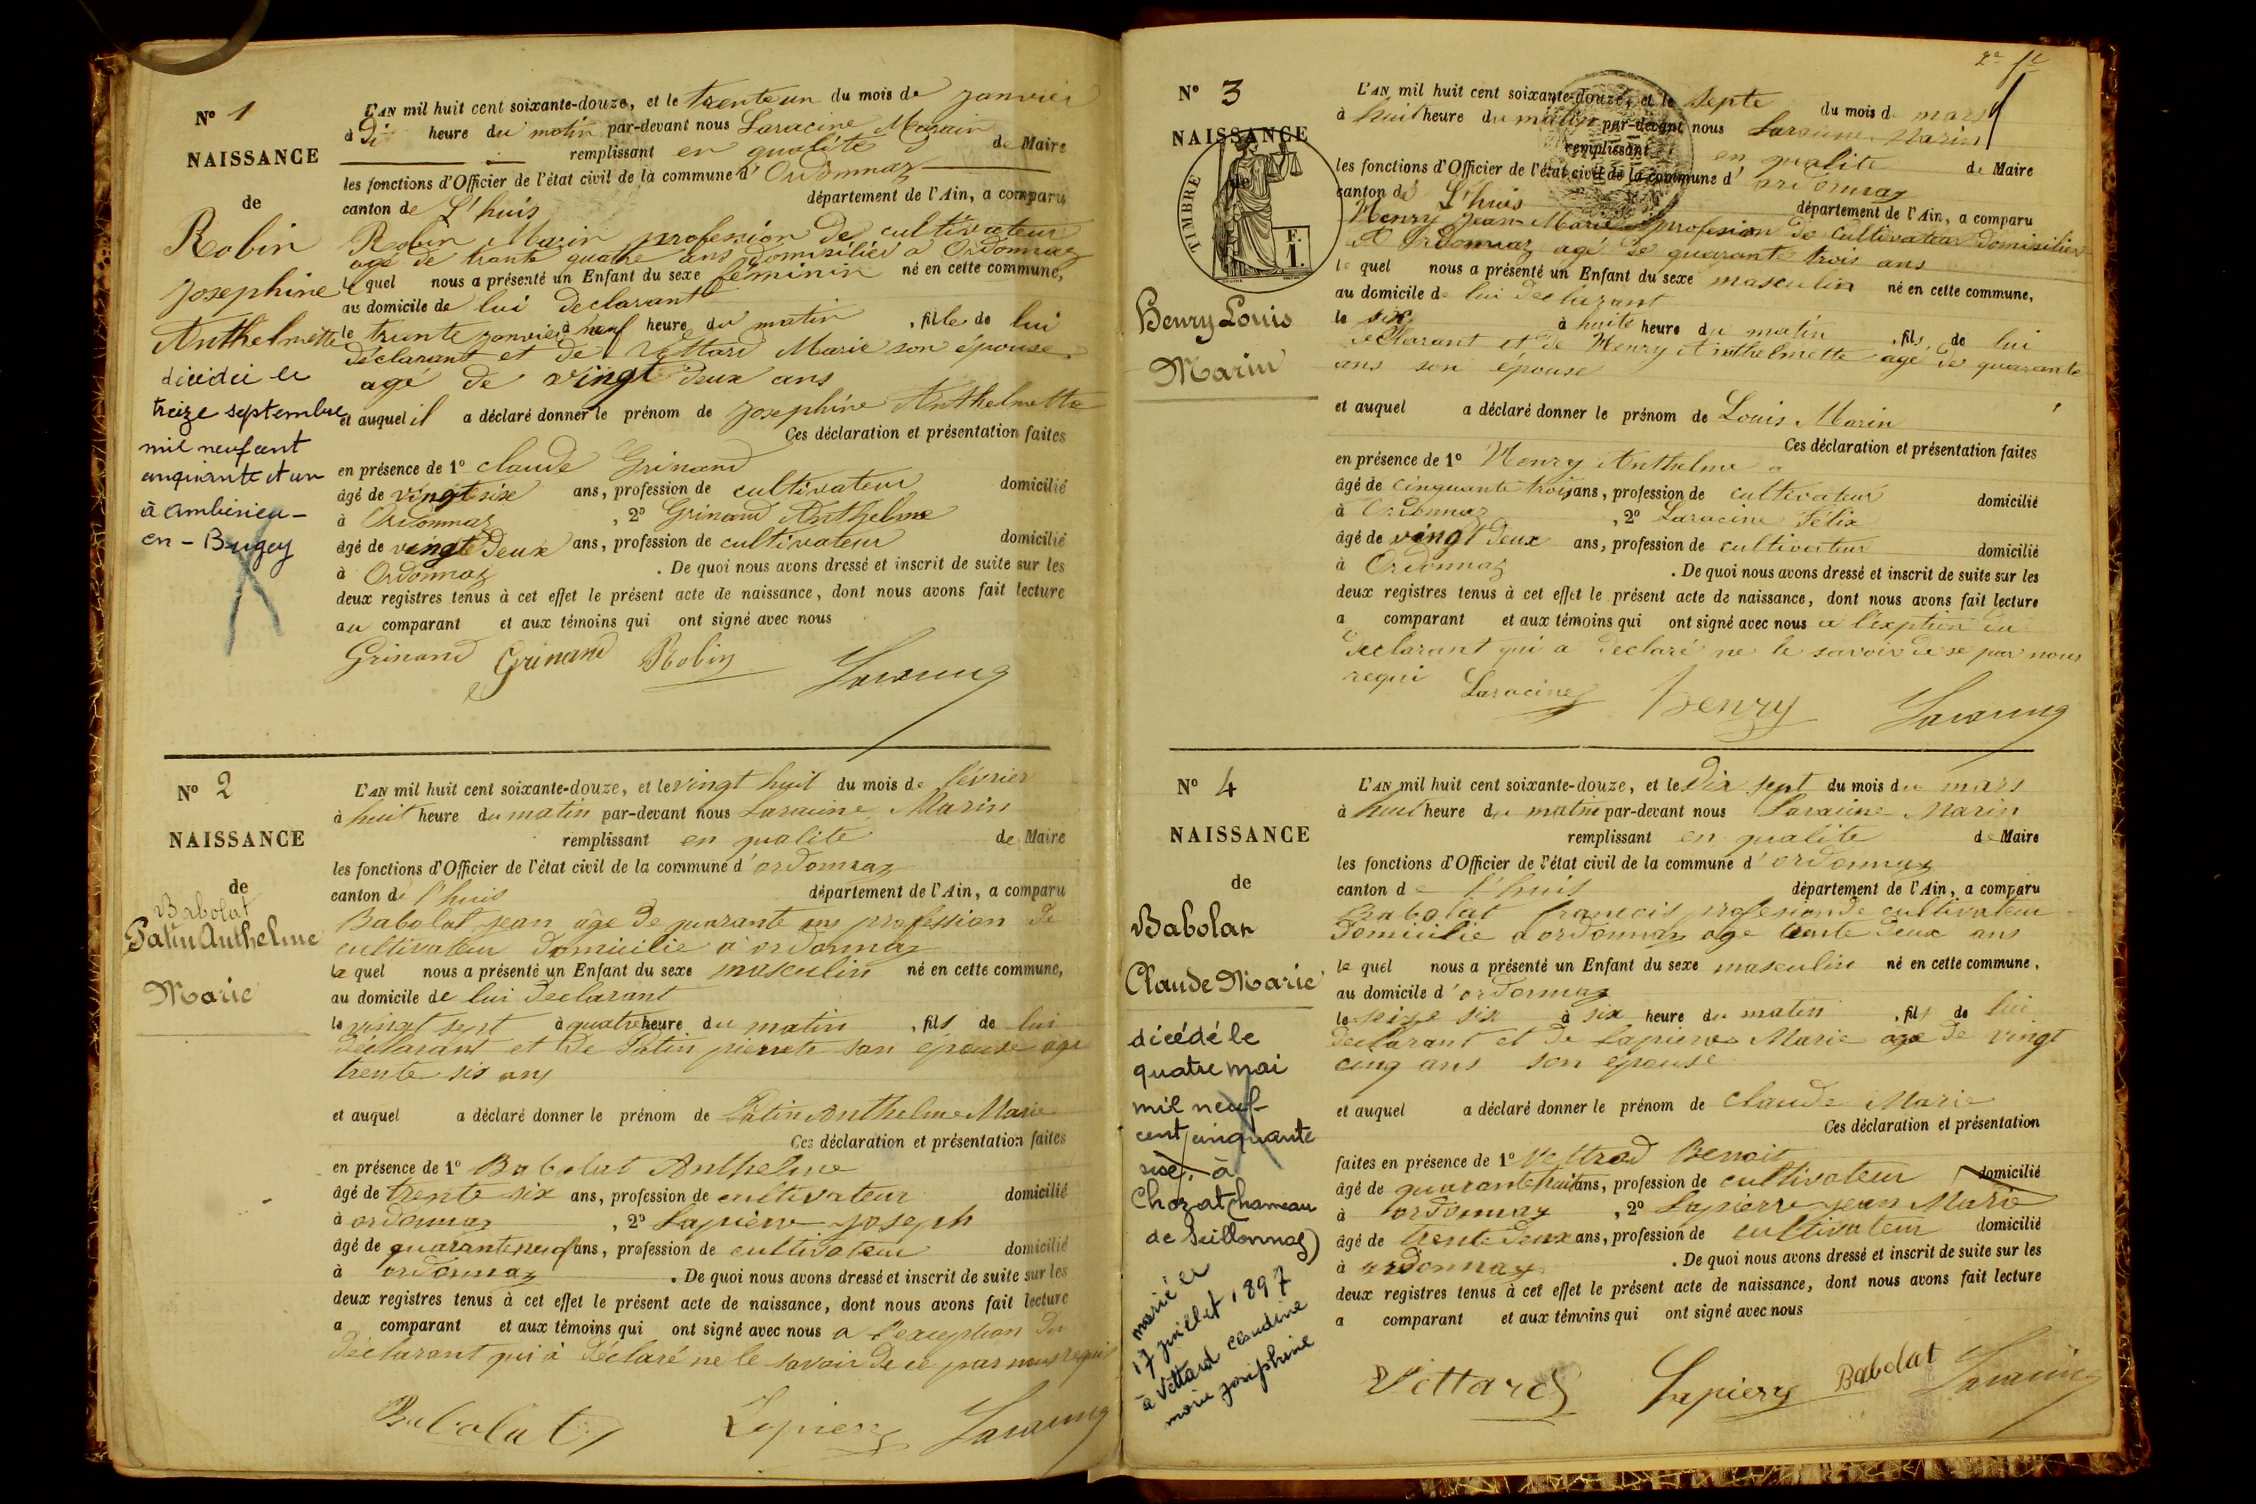 Nº 1
NAISSANCE
de
Robin
Josephine
Anthelmette
décédée le
treize septembre
mil neuf cent
cinquante et un
à Ambérieu-
en-Bugey
L'AN mil huit cent soixante-douze, et le trente un du mois de janvier
à Di heure du matin par-devant nous Laracine Marin
remplissant en qualité de Maire
les fonctions d'Officier de l'état civil de la commune d'Ordonnaz
canton de L'huis département de l'Ain, a comparu
Robin Marin profession de cultivateur
agé de trante quatre ans domisiliée a Ordonnaz
le quel nous a présenté un Enfant du sexe féminin né en cette commune,
au domicile de lui declarant
le trente janvier à neuf heure du matin , fille de lui
déclarant et de Vettard Marie son épouse
agé de vingt deux ans
et auquel il a déclaré donner le prénom de Josephine Anthelmette
Ces déclaration et présentation faites
en présence de 1º claude Grinand
âgé de vingt six ans, profession de cultivateur domicilié
à Ordonnaz , 2º Grinand Anthelme
âgé de vingt deux ans, profession de cultivateur domicilié
à Ordonnaz . De quoi nous avons dressé et inscrit de suite sur les
deux registres tenus à cet effet le présent acte de naissance, dont nous avons fait lecture
au comparant et aux témoins qui ont signé avec nous
Grinand Grinand Robin Laracine
Nº 2
NAISSANCE
de
Babolat
Patin Anthelme
Marie
L'AN mil huit cent soixante-douze, et le vingt huit du mois de février
à huit heure du matin par-devant nous Laracine Marin
remplissant en qualite de Maire
les fonctions d'Officier de l'état civil de la commune d'ordonnaz
canton de l'huis département de l'Ain, a comparu
Babolat jean age de quarante ans profession de
cultivateur domicilie a ordonnaz
le quel nous a présenté un Enfant du sexe masculin né en cette commune,
au domicile de lui declarant
le vingt sept à quatre heure du matin , fils de lui
déclarant et de Patin pierrete son epouse age
trente six ans
et auquel a déclaré donner le prénom de Patin Anthelme Marie
Ces déclaration et présentation faites
en présence de 1º Babolat Anthelme
âgé de trente six ans, profession de cultivateur domicilié
à ordonnaz , 2º Lapierre joseph
âgé de quarante neuf ans, profession de cultivateur domicilié
à ordonnaz . De quoi nous avons dressé et inscrit de suite sur les
deux registres tenus à cet effet le présent acte de naissance, dont nous avons fait lecture
a comparant et aux témoins qui ont signé avec nous a l'exception du
déclarant qui à déclaré ne le savoir de ce par nous requi
Babolat Lapierre Laracine
Nº 3
NAISSANCE
de
TIMBRE
F.
1.
Henry Louis
Marin
L'AN mil huit cent soixante-douze, et le septe du mois d mars
à huit heure du matin par-devant nous Laracine Marin
remplissant en qualité de Maire
les fonctions d'Officier de l'état civil de la commune d'ordonnaz
canton de L'huis département de l'Ain, a comparu
Henry Jean Marie profession de cultivateur domisilier
a Ordonnaz agé de quarante trois ans
le quel nous a présenté un Enfant du sexe masculin né en cette commune,
au domicile de lui declarant
le six à huite heure du matin , fils de lui
declarant et de Henry Anthelmette agé de quarante
ans son épouse
et auquel a déclaré donner le prénom de Louis Marin
Ces déclaration et présentation faites
en présence de 1º Henry Anthelme
âgé de cinquante trois ans, profession de cultivateur domicilié
à Ordonnaz , 2º Laracine Félix
âgé de vingt deux ans, profession de cultivateur domicilié
à Ordonnaz . De quoi nous avons dressé et inscrit de suite sur les
deux registres tenus à cet effet le présent acte de naissance, dont nous avons fait lecture
a comparant et aux témoins qui ont signé avec nous a l'exption du
declarant qui a declaré ne le savoir de se par nous
requi
Laracine Henry Laracine
Nº 4
NAISSANCE
de
Babolat
Claude Marie
décédé le
quatre mai
mil neuf
cent cinquante
six à
Chozat (hameau
de Seillonnaz)
marié le
17 juillet 1897
à Vettard Claudine
marie joséphine
L'AN mil huit cent soixante-douze, et le Dix sept du mois du mars
à huit heure du matin par-devant nous Laracine Marin
remplissant en qualite de Maire
les fonctions d'Officier de l'état civil de la commune d'ordonnaz
canton de l'huis département de l'Ain, a comparu
Babolat francois profession de cultivateur
domicilie a ordonnaz age trente deux ans
le quel nous a présenté un Enfant du sexe masculin né en cette commune,
au domicile d'ordonnaz
le seize six à six heure du matin , fils de lui
declarant et de Lapierre Marie age de vingt
cinq ans son epouse
et auquel a déclaré donner le prénom de Claude Marie
Ces déclaration et présentation
faites en présence de 1º Vettrad Benoit
âgé de quarante huit ans, profession de cultivateur domicilié
à ordonnaz , 2º Lapierre jean Marie
âgé de trente deux ans, profession de cultivateur domicilié
à ordonnaz . De quoi nous avons dressé et inscrit de suite sur les
deux registres tenus à cet effet le présent acte de naissance, dont nous avons fait lecture
a comparant et aux témoins qui ont signé avec nous
Vettard Lapierre Babolat Laracine